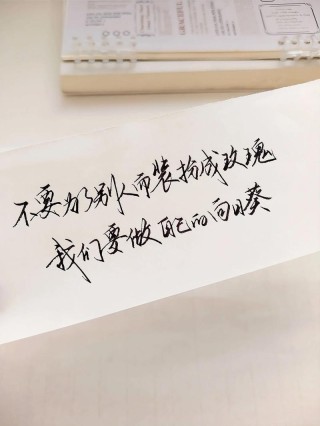 不要为了别人而装扮成玫瑰
我们要做自己的向日葵